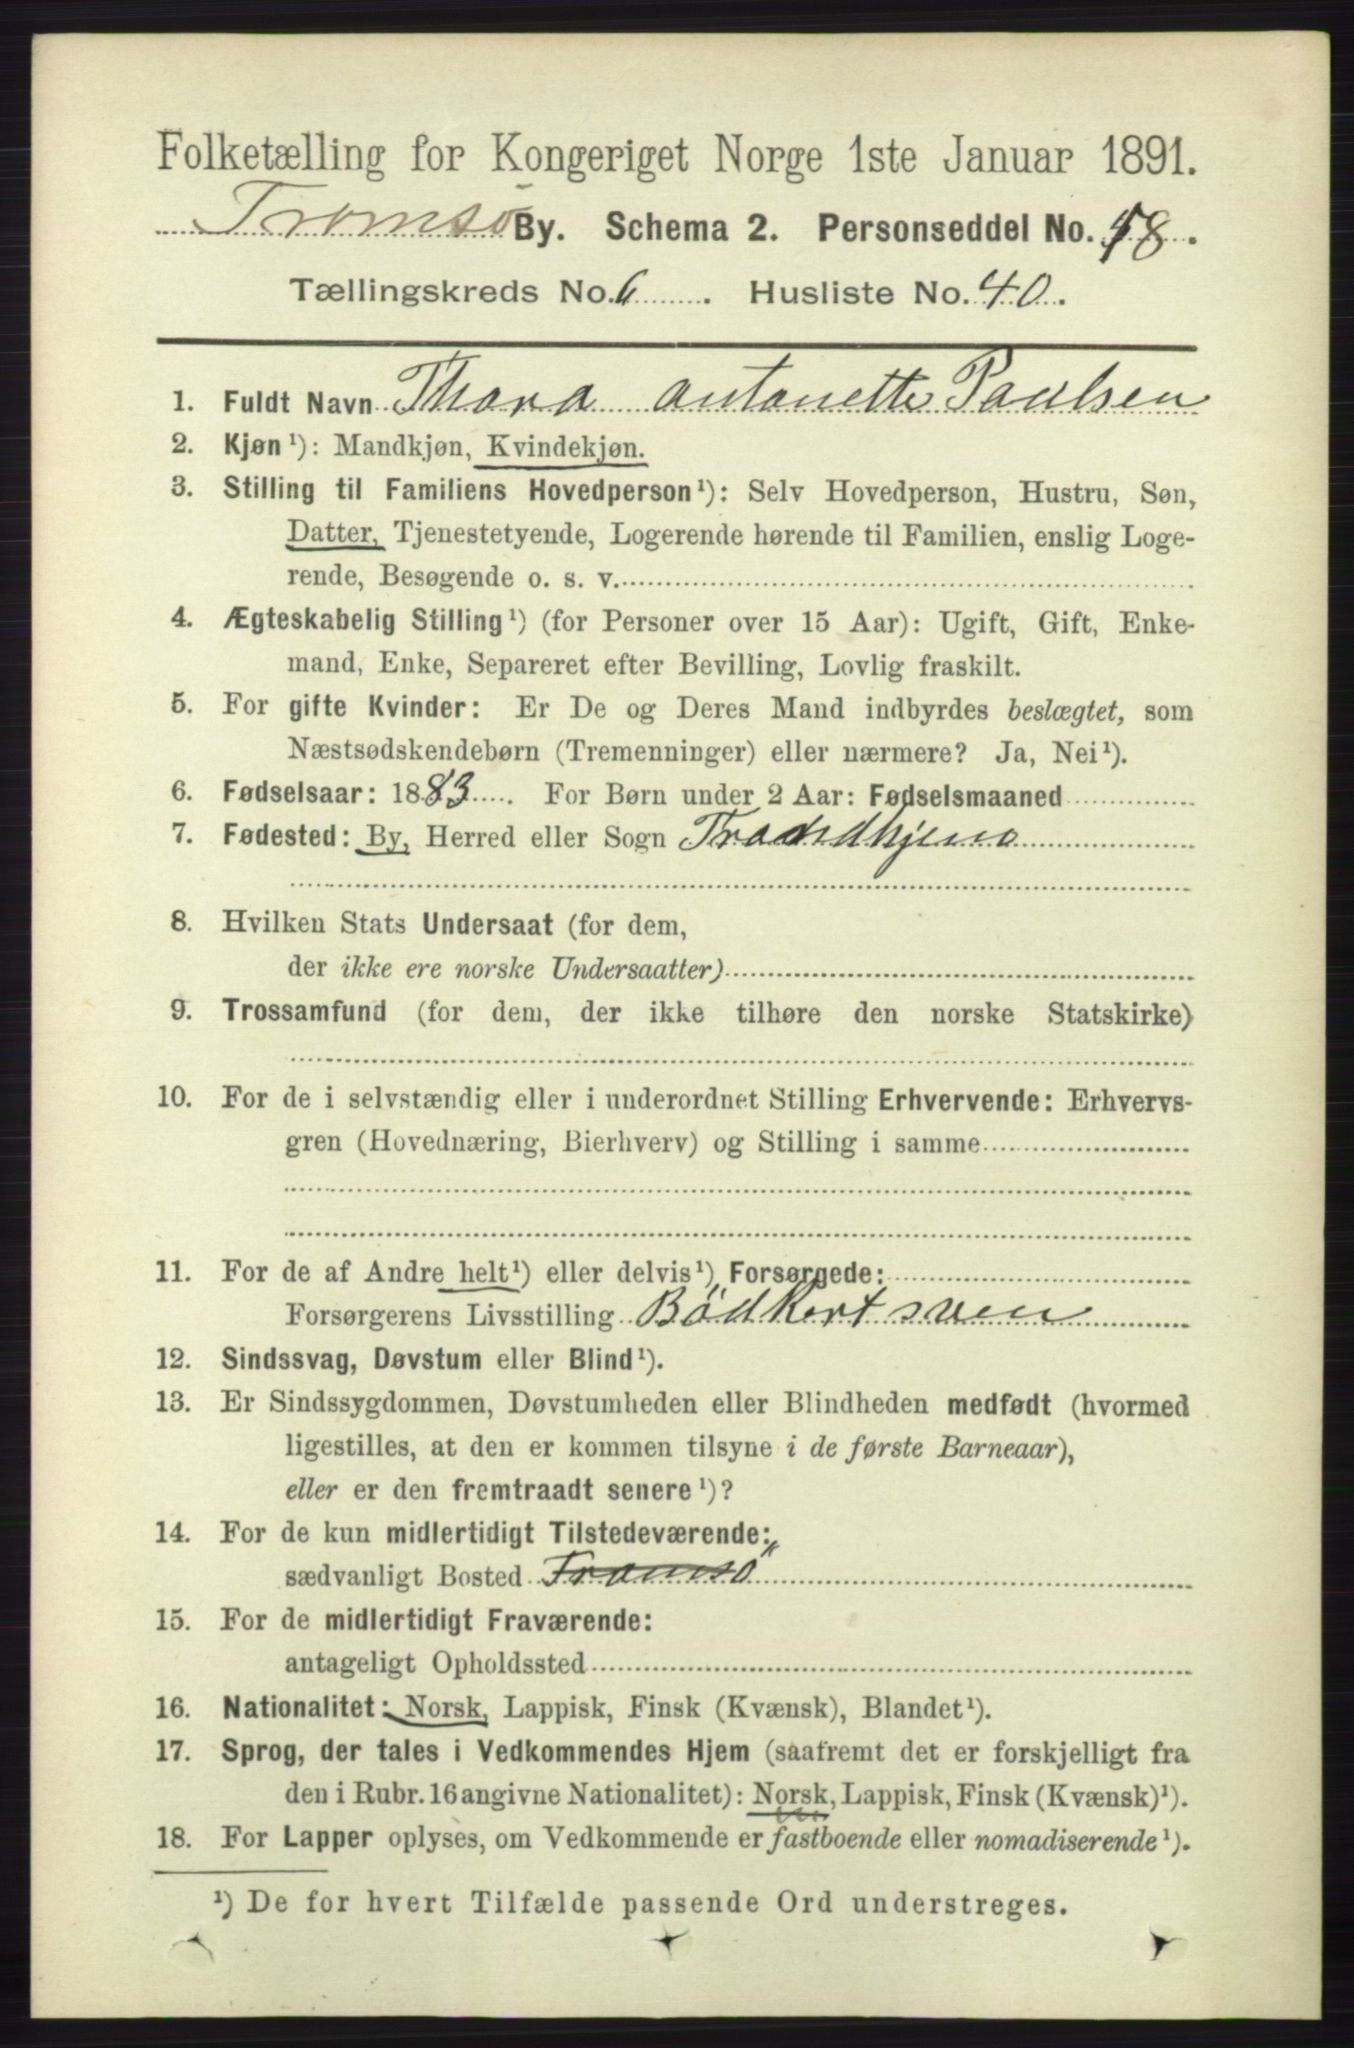 Folketælling for Kongeriget Norge 1ste Januar 1891.
Tromsø By. Schema 2. Personseddel No. 18.
Tællingskreds No. 6. Husliste No. 40.
1. Fuldt Navn Thora Antonette Paulsen
2. Kjøn¹): Mandkjøn, Kvindekjøn.
3. Stilling til Familiens Hovedperson¹): Selv Hovedperson, Hustru, Søn,
Datter, Tjenestetyende, Logerende hørende til Familien, enslig Loge-
rende, Besøgende o. s. v.
4. Ægteskabelig Stilling¹) (for Personer over 15 Aar): Ugift, Gift, Enke-
mand, Enke, Separeret efter Bevilling, Lovlig fraskilt.
5. For gifte Kvinder: Er De og Deres Mand indbyrdes beslægtet, som
Næstsødskendebørn (Tremenninger) eller nærmere? Ja, Nei¹).
6. Fødselsaar: 1883. For Børn under 2 Aar: Fødselsmaaned
7. Fødested: By, Herred eller Sogn Trondhjem
8. Hvilken Stats Undersaat (for dem,
der ikke ere norske Undersaatter)
9. Trossamfund (for dem, der ikke tilhøre den norske Statskirke)
10. For de i selvstændig eller i underordnet Stilling Erhvervende: Erhvervs-
gren (Hovednæring, Bierhverv) og Stilling i samme
11. For de af Andre helt¹) eller delvis¹) Forsørgede:
Forsørgerens Livsstilling Bødkertsven
12. Sindssvag, Døvstum eller Blind¹).
13. Er Sindssygdommen, Døvstumheden eller Blindheden medfødt (hvormed
ligestilles, at den er kommen tilsyne i de første Barneaar),
eller er den fremtraadt senere¹)?
14. For de kun midlertidigt Tilstedeværende:
sædvanligt Bosted Tromsø
15. For de midlertidigt Fraværende:
antageligt Opholdssted
16. Nationalitet: Norsk, Lappisk, Finsk (Kvænsk), Blandet¹).
17. Sprog, der tales i Vedkommendes Hjem (saafremt det er forskjelligt fra
den i Rubr. 16 angivne Nationalitet): Norsk, Lappisk, Finsk (Kvænsk)¹).
18. For Lapper oplyses, om Vedkommende er fastboende eller nomadiserende¹).
¹) De for hvert Tilfælde passende Ord understreges.